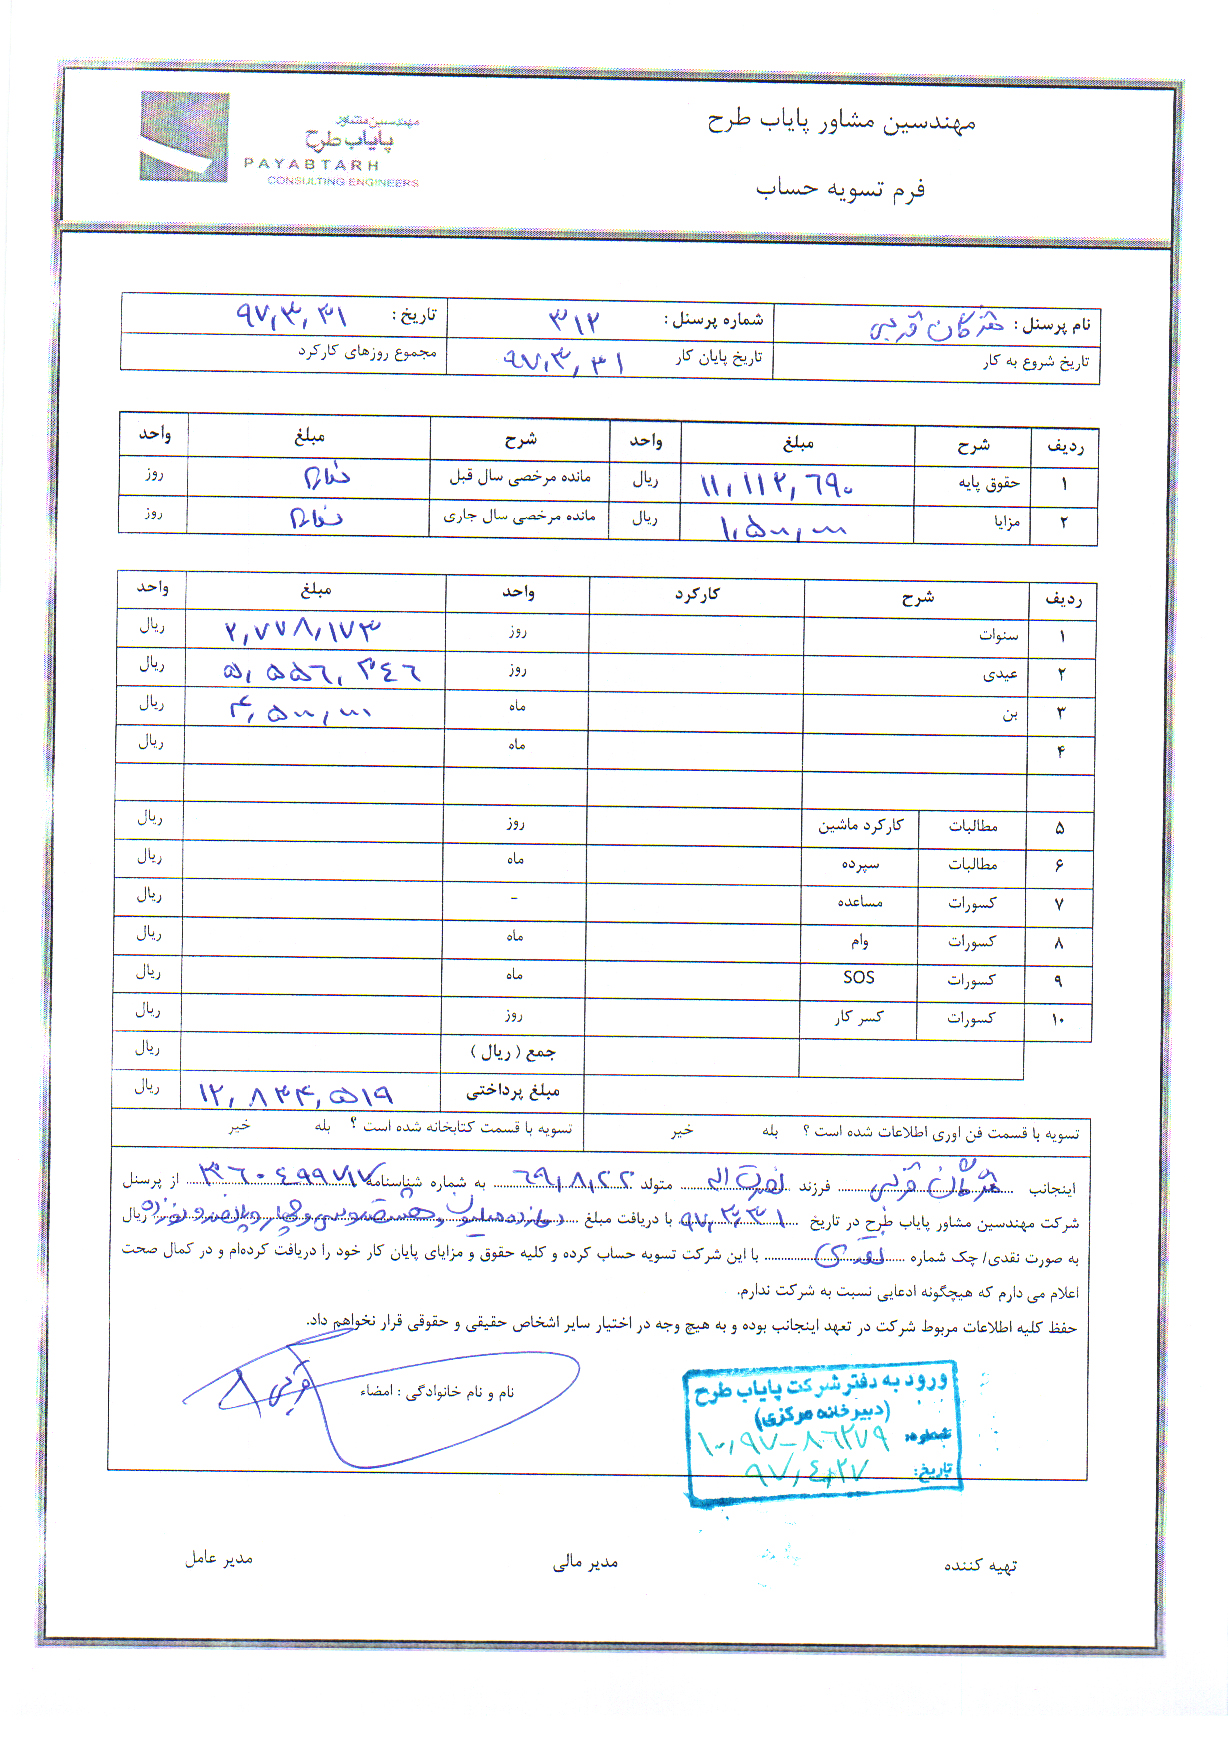 مهندسین مشاور پایاب طرح
مهندسین مشاور
پایاب طرح
PAYABTARH
CONSULTING ENGINEERS
فرم تسویه حساب
نام پرسنل : مژگان قربی شماره پرسنل : ۳۱۲ تاریخ : ۹۷,۳,۳۱
تاریخ شروع به کار تاریخ پایان کار ۹۷,۳,۳۱ مجموع روزهای کارکرد
ردیف شرح مبلغ واحد شرح مبلغ واحد
۱ حقوق پایه ۱۱,۱۱۲,۶۹۰ ریال مانده مرخصی سال قبل ندارد روز
۲ مزایا ۱,۵۰۰,۰۰۰ ریال مانده مرخصی سال جاری ندارد روز
ردیف شرح کارکرد واحد مبلغ واحد
۱ سنوات روز ۲,۷۷۸,۱۷۳ ریال
۲ عیدی روز ۵,۵۵۶,۳۴۶ ریال
۳ بن ماه ۴,۵۰۰,۰۰۰ ریال
۴ ماه ریال
۵ مطالبات کارکرد ماشین روز ریال
۶ مطالبات سپرده ماه ریال
۷ کسورات مساعده - ریال
۸ کسورات وام ماه ریال
۹ کسورات SOS ماه ریال
۱۰ کسورات کسر کار روز ریال
جمع ( ریال ) ریال
مبلغ پرداختی ۱۲,۸۳۴,۵۱۹ ریال
تسویه با قسمت فن اوری اطلاعات شده است ؟ بله خیر تسویه با قسمت کتابخانه شده است ؟ بله خیر
اینجانب مژگان قربی فرزند نصرت اله متولد ۶۹,۸,۲۲ به شماره شناسنامه ۳۶۰۴۹۹۷۱۷ از پرسنل
شرکت مهندسین مشاور پایاب طرح در تاریخ ۹۷,۳,۳۱ با دریافت مبلغ دوازده میلیون و هشتصد و سی و چهار و پانصد و نوزده ریال
به صورت نقدی/ چک شماره نقدی با این شرکت تسویه حساب کرده و کلیه حقوق و مزایای پایان کار خود را دریافت کرده‌ام و در کمال صحت
اعلام می دارم که هیچگونه ادعایی نسبت به شرکت ندارم.
حفظ کلیه اطلاعات مربوط شرکت در تعهد اینجانب بوده و به هیچ وجه در اختیار سایر اشخاص حقیقی و حقوقی قرار نخواهم داد.
نام و نام خانوادگی : امضاء قربی
ورود به دفتر شرکت پایاب طرح
(دبیرخانه مرکزی)
شماره: ۱۰,۹۷-۸۶۲۷۹
تاریخ: ۹۷,۴,۲۷
تهیه کننده مدیر مالی مدیر عامل